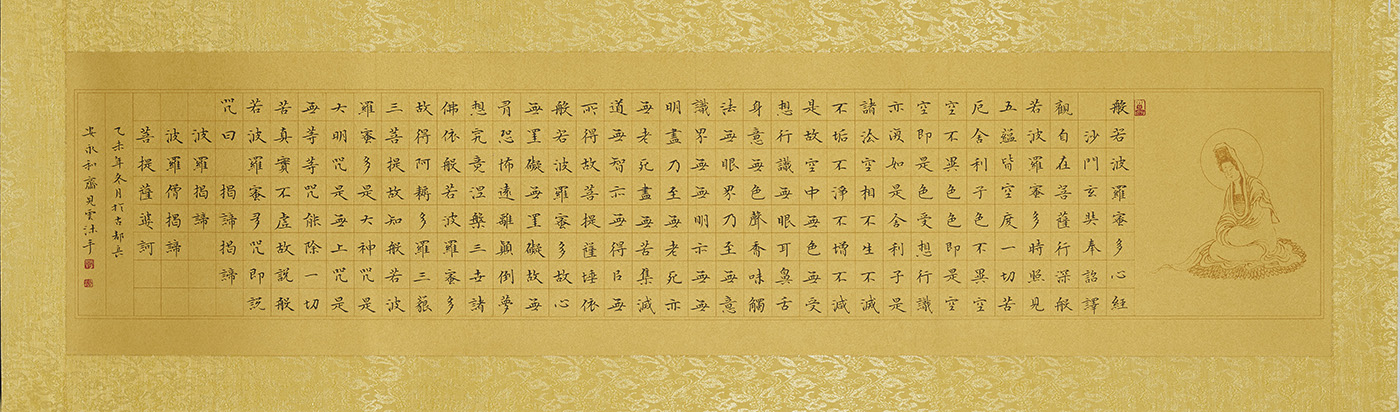 般若波羅蜜多心經
沙門玄奘奉詔譯
觀自在菩薩行深般
若波羅蜜多時照見
五蘊皆空度一切苦
厄舍利子色不異空
空不異色色即是空
空即是色受想行識
亦復如是舍利子是
諸法空相不生不滅
不垢不淨不增不減
是故空中無色無受
想行識無眼耳鼻舌
身意無色聲香味觸
法無眼界乃至無意
識界無無明亦無無
明盡乃至無老死亦
無老死盡無苦集滅
道無智亦無得以無
所得故菩提薩埵依
般若波羅蜜多故心
無罣礙無罣礙故無
有恐怖遠離顛倒夢
想究竟涅槃三世諸
佛依般若波羅蜜多
故得阿耨多羅三藐
三菩提故知般若波
羅蜜多是大神咒是
大明咒是無上咒是
無等等咒能除一切
苦真實不虛故說般
若波羅蜜多咒即說
咒曰 揭諦揭諦
波羅揭諦
波羅僧揭諦
菩提薩婆訶
乙未年冬月於古都長
安永和齋見雲沐手